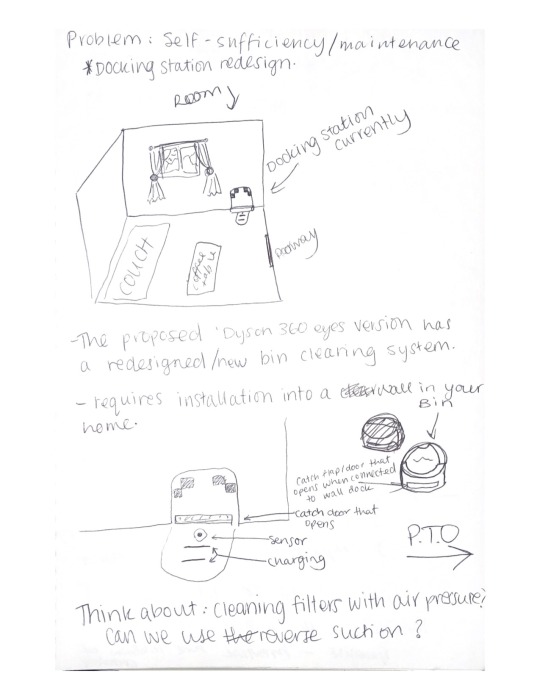 Problem: Self-sufficiency/maintenance
*Docking station redesign.
ROOM
Docking station
currently
Doorway
COUCH
coffee
table
-The proposed 'Dyson 360 eyes version has
a redesigned/new bin clearing system.
- requires installation into a wall in your
home.
Bin
Catch flap/door that
opens when connected
to wall dock
catch door that
opens
sensor
charging
P.T.O
Think about: Cleaning filters with air pressure?
Can we use the reverse suction?